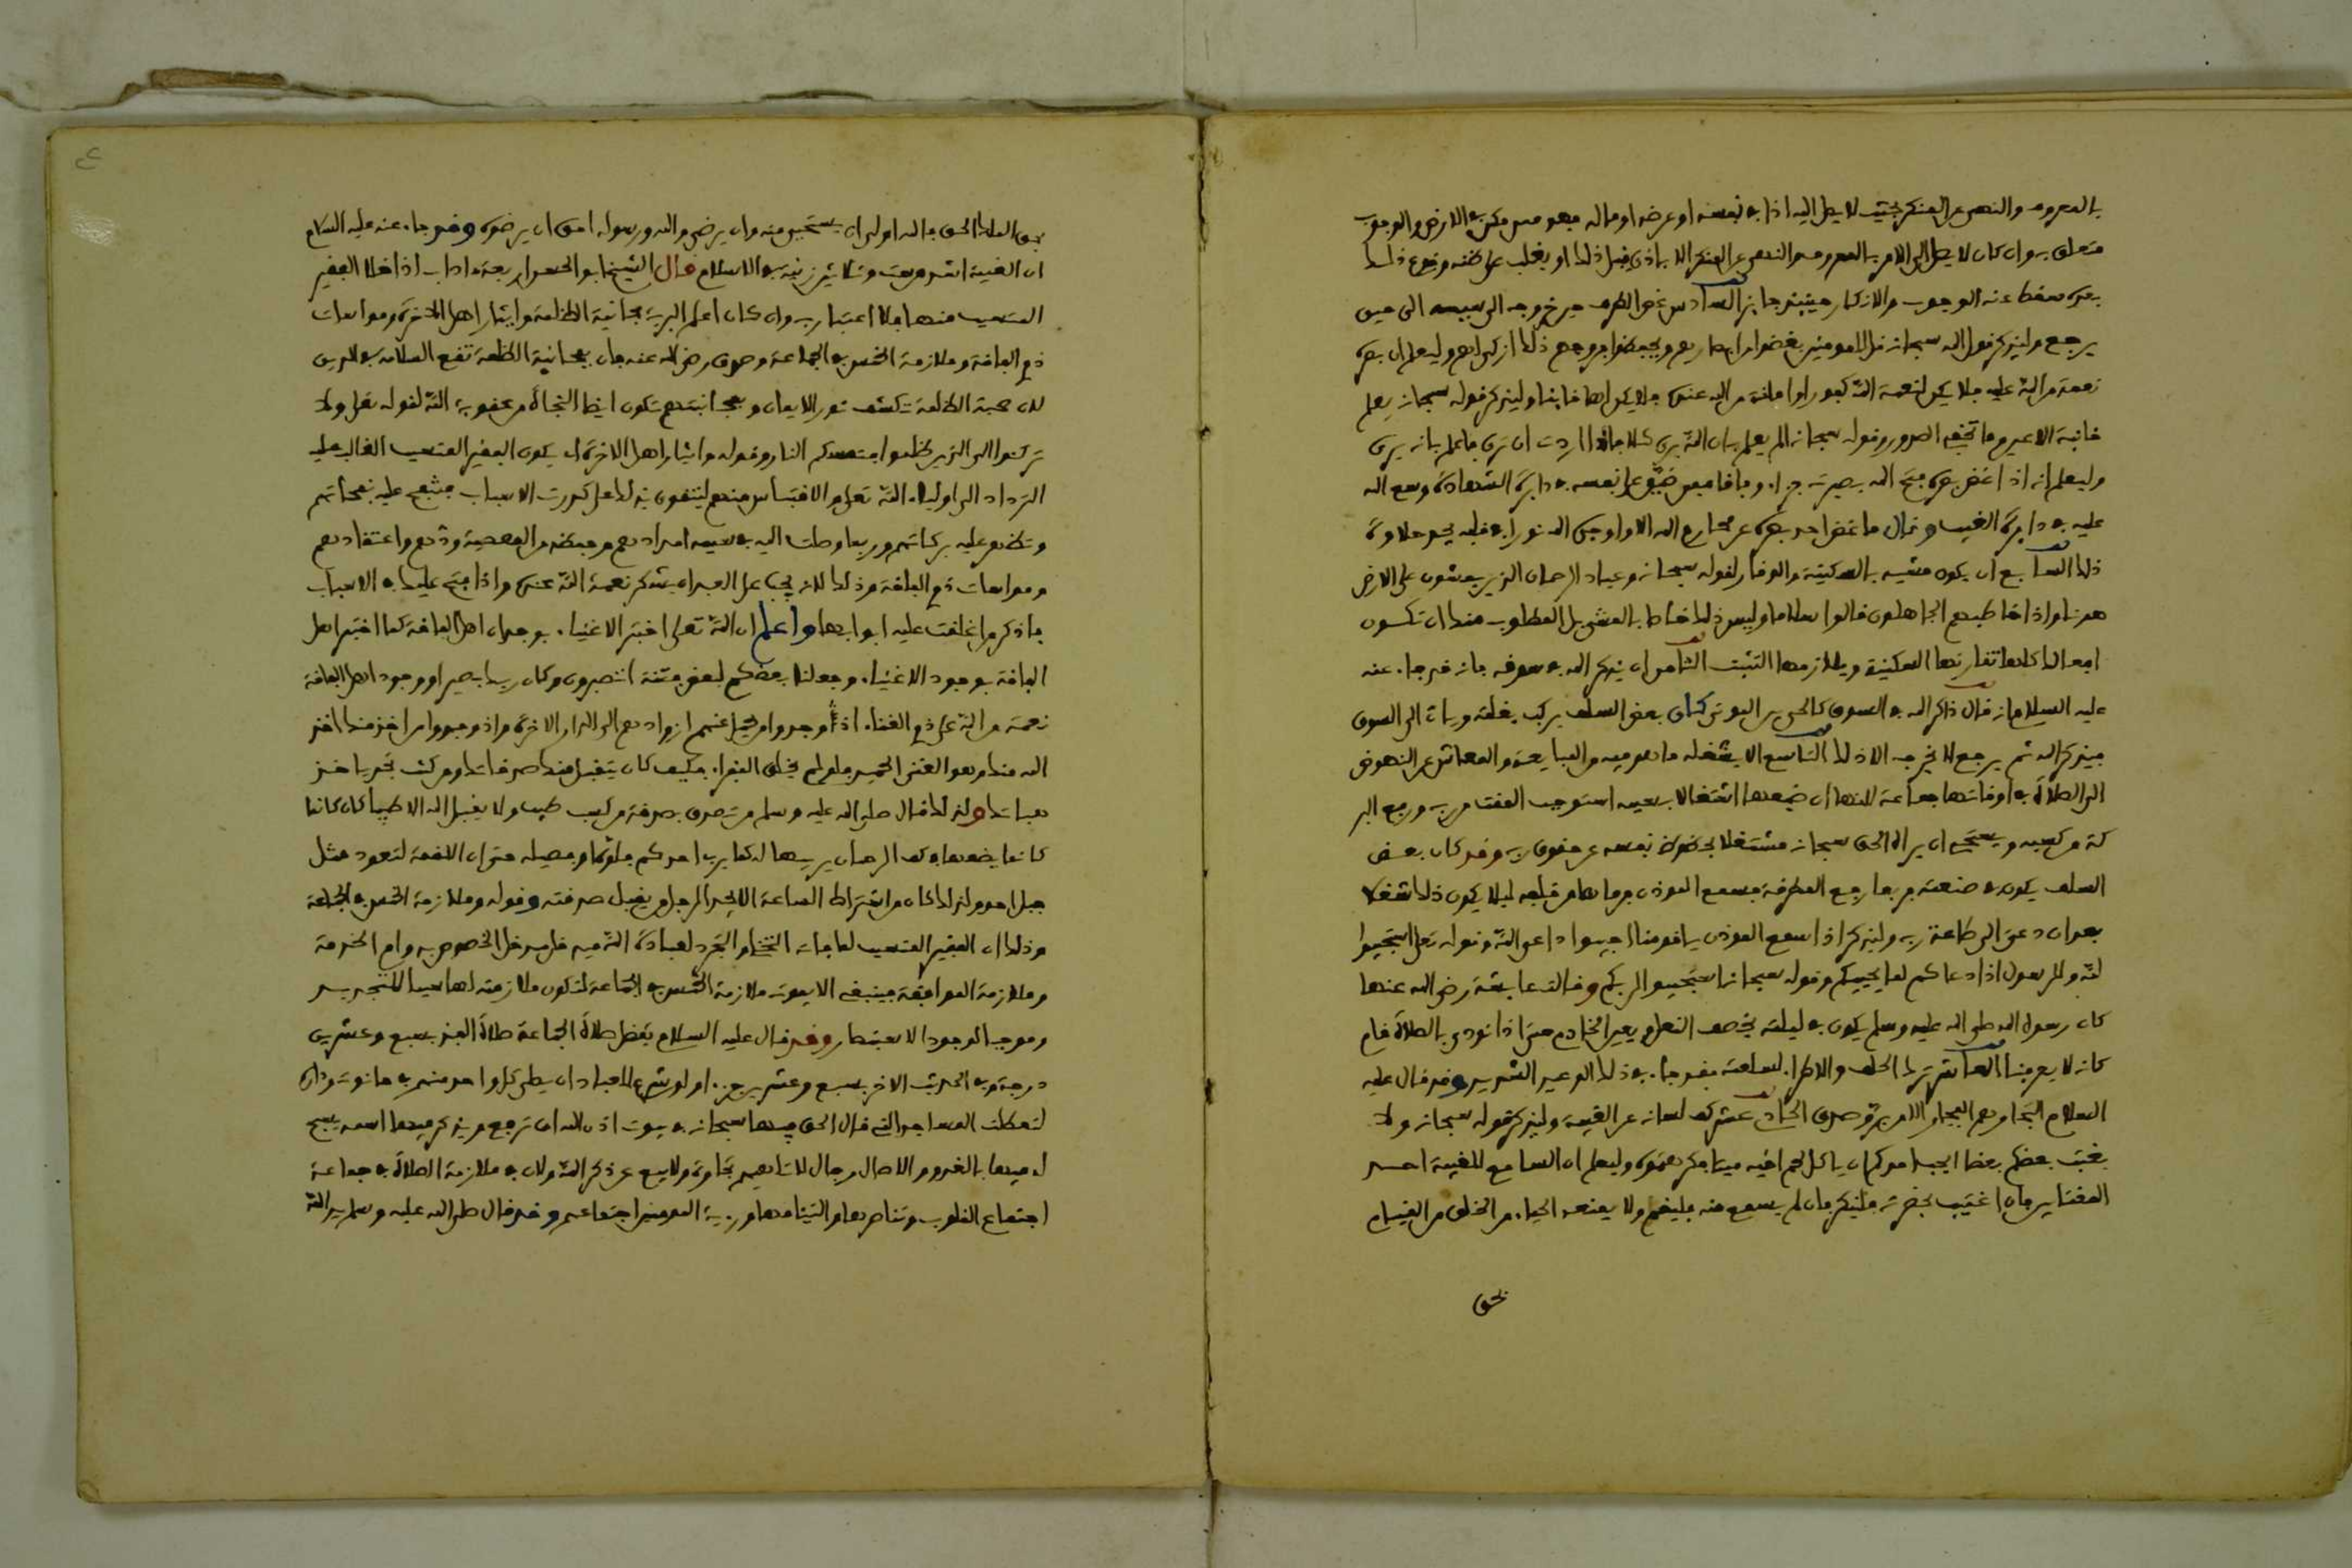 بالمعروف والنهي عن المنكر بحيث لا يصل اليه اذا في نفسه او عرضه او ماله فهو ممن مكن في الارض والوجوب
متعلق به وان كان لا يصل الى الامر بالمعروف والنهي عن المنكر الا باذى قبل ذلك او يغلب على ظنه وقوع ذلك
بعده سقط عنه الوجوب والانكار حينئذ جائز السادس غض الطرف من خروجه الى سببه الى حين
يرجع وليذكر قول الله سبحانه قل للمومنين يغضوا من ابصارهم ويحفظوا فروجهم ذلك ازكى لهم وليعلم ان بصره
نعمة من الله عليه فلا يكن لنعمة الله كفورا وامانة من الله عنده فلا يكن لها خائنا وليذكر قوله سبحانه يعلم
خائنة الاعين وما تخفي الصدور وقوله سبحانه الم يعلم بان الله يرى فاذا اردت ان ترى فاعلم بانه يرى
وليعلم انه اذا غض بصره فتح الله بصيرته جزاء وفاقا فمن ضيق على نفسه في دائرة الشهادة وسع الله
عليه في دائرة الغيب وقال ما غض احد بصره عن محارم الله الا اوجد الله نورا في قلبه يجد حلاوة
ذلك السابع ان يكون مشيه بالسكينة والوقار لقوله سبحانه وعباد الرحمان الذين يمشون على الارض
هونا واذا خاطبهم الجاهلون قالوا سلاما وليس ذلك خاصا بالمشي بل المطلوب منك ان تكون
افعالك كلها تقارنها السكينة ويلازمها التثبت الثامن ان يذكر الله في سوقه فانه قد جاء عنه
عليه السلام انه قال ذاكر الله في السوق كالحي بين الموتى كان بعض السلف يركب بغلته وياتي الى السوق
فيذكر الله ثم يرجع لا يخرجه الا ذلك التاسع الا يشغله ما هو فيه من المبايعة والمعاش عن النهوض
الى الصلاة في اوقاتها جماعة لانها ان ضيعها اشتغالا بسببه استوجب المقت من ربه ورفع البر
كة من كسبه ويستحي ان يراه الحق سبحانه مشتغلا بحظوظ نفسه عن حقوق ربه وقد كان بعض
السلف يكون في صنعته فربما رفع المطرقة فسمع الموذن فرماها من خلفه ليلا يكون ذلك شغلا
بعد ان دعي الى طاعة ربه وليذكر اذا سمع الموذن ياقومنا اجيبوا داعي الله وقوله تعلى استجيبوا
لله وللرسول اذا دعاكم لما يحييكم وقوله سبحانه استجيبوا لربكم وقالت عايشة رضي الله عنها
كان رسول الله صلى الله عليه وسلم يكون في بيته يخصف النعل ويعين الخادم حتى اذا نودي بالصلاة قام
كانه لا يعرفنا العاشر ترك الحلف والاطراء لسلعته فقد جاء في ذلك الوعيد الشديد وقد قال عليه
السلام التجار هم الفجار الا من بر وصدق الحادي عشر كف لسانه عن الغيبة وليذكر قوله سبحانه ولا
يغتب بعضكم بعضا ايحب احدكم ان ياكل لحم اخيه ميتا فكرهتموه وليعلم ان السامع للغيبة احد
المغتابين فان اغتيب بحضرته فلينكر فان لم يسمع منه فليقم ولا يمنعه الحياء من الخلق من القيام
بحق
بحق الملك الحق فالله اولى ان يستحيى منه وان يرضي والله ورسوله احق ان يرضوه وقد جاء عنه عليه السلام
ان الغيبة اشد من ست وثلاثين زنية في الاسلام قال الشيخ ابو الحسن اربعة اداب اذا خلا الفقير
المتسبب منها فلا اعتبار به وان كان اعلم البرية مجانبة الظلمة وايثار اهل الاخرة ومواسات
ذي الفاقة وملازمة الخمس في الجماعة وصدق رضي الله عنه فان بمجانبة الظلمة تقع السلامة في الدين
لان صحبة الظلمة تكسف نور الايمان ومجانبتهم تكون ايضا النجاة من عقوبة الله لقوله تعلى ولا
تركنوا الى الذين ظلموا فتمسكم النار وقوله وايثار اهل الاخرة ان يكون الفقير المتسبب الغالب عليه
الترداد الى اولياء الله تعلى والاقتباس منهم ليتقوى بذلك على كدورت الاسباب فتنفح عليه نفحاتهم
وتظهر عليه بركاتهم وربما وصلت اليه في سببه امدادهم وحفظه من المعصية ودهم واعتقادهم
ومواسات ذي الفاقة وذلك لانه يجب على العبد ان يشكر نعمة الله عنده واذا فتح عليك في الاسباب
فاذكر من اغلقت عليه ابوابها واعلم ان الله تعلى اختبر الاغنياء بوجدان اهل الفاقة كما اختبر اهل
الفاقة بوجود الاغنياء وجعلنا بعضكم لبعض فتنة اتصبرون وكان ربك بصيرا ووجود اهل الفاقة
نعمة من الله على ذي الغناء اذ وجدوا من يحمل عنهم ازوادهم الى الدار الاخرة واذ وجدوا من اذا اخذ منك اخذ
الله منك وهو الغني الحميد فلو لم يخلق الفقراء فكيف كان يتقبل منك صدقاتك ومن كنت تجد ياخذ
هباتك ولذلك قال صلى الله عليه وسلم من تصدق بصدقة من كسب طيب ولا يقبل الله الا طيبا كان كانما
كانما يضعها في كف الرحمان يربيها له كما يربي احدكم فلوه او فصيله حتى ان اللقمة لتعود مثل
جبل احد ولذلك كان من اشتراط الساعة الا يجد الرجل من يقبل صدقته وقوله وملازمة الخمس في الجماعة
وذلك ان الفقير المتسبب لما فاته التخلي والتجرد لعبادة الله فيه فله مدخل الخصوصية ودوام الخدمة
وملازمة الموافقة فينبغي الا يفوته ملازمة الخمس في الجماعة لتكون ملازمته لها سببا للتجديد
وموجبا لوجود الاستبصار وقد قال عليه السلام تفضل صلاة الجماعة صلاة الفذ بسبع وعشرين
درجة وفي الحديث الاخر بسبع وعشرين جزءا ولو شرع للعباد ان يصلي كل واحد منهم في حانوته وداره
لتعطلت المساجد التي قال الحق فيها سبحانه في بيوت اذن الله ان ترفع ويذكر فيها اسمه يسبح
له فيها بالغدو والاصال رجال لا تلهيهم تجارة ولا بيع عن ذكر الله ولان في ملازمة الصلاة في جماعة
اجتماع القلوب وتناصرها والتيامها ورؤية المومنين اجتماعهم وقد قال صلى الله عليه وسلم يد الله